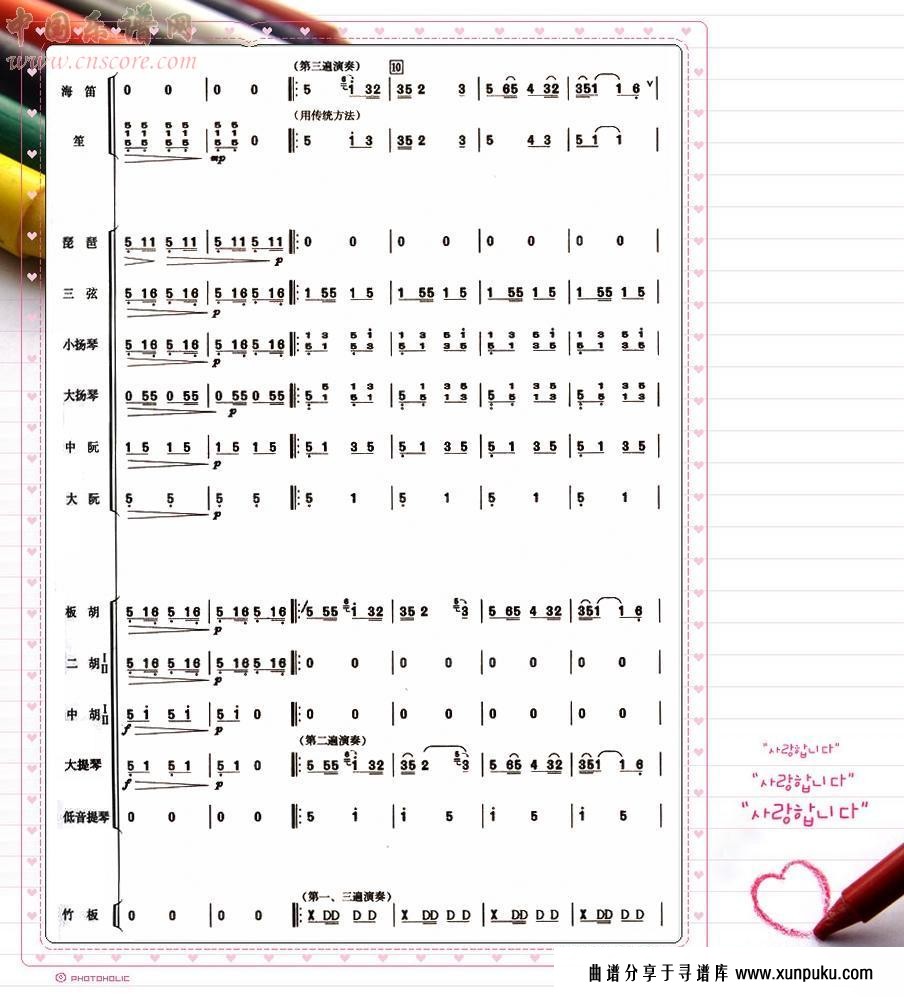 中国乐谱网
www.cnscore.com
（第三遍演奏） 10
海 笛 0 0 0 0 5 i 32 35 2 3 5 65 4 32 351 1 6 v
（用传统方法）
笙 mp 0 5 i 3 35 2 3 5 4 3 5 1 1
琵 琶 5 11 5 11 5 11 5 11 p 0 0 0 0 0 0 0 0
三 弦 5 16 5 16 5 16 5 16 p 1 55 1 5 1 55 1 5 1 55 1 5 1 55 1 5
小扬琴 5 16 5 16 5 16 5 16 p
大扬琴 0 55 0 55 0 55 0 55 p
中 阮 1 5 1 5 1 5 1 5 p 5 1 3 5 5 1 3 5 5 1 3 5 5 1 3 5
大 阮 5 5 5 5 p 5 1 5 1 5 1 5 1
板 胡 5 16 5 16 5 16 5 16 p 5 55 i 32 35 2 3 5 65 4 32 351 1 6
二 胡 I II 5 16 5 16 5 16 5 16 p 0 0 0 0 0 0 0 0
中 胡 I II f 5 i 5 i 5 i 0 p 0 0 0 0 0 0 0 0
（第二遍演奏）
大提琴 f 5 1 5 1 5 1 0 p 5 55 i 32 35 2 3 5 65 4 32 351 1 6
低音提琴 0 0 0 0 5 i i 5 i 5 i 5
（第一、三遍演奏）
竹 板 0 0 0 0 X DD D D X DD D D X DD D D X DD D D
"사랑합니다"
"사랑합니다"
"사랑합니다"
PHOTOHOLIC
曲谱分享于寻谱库 www.xunpuku.com